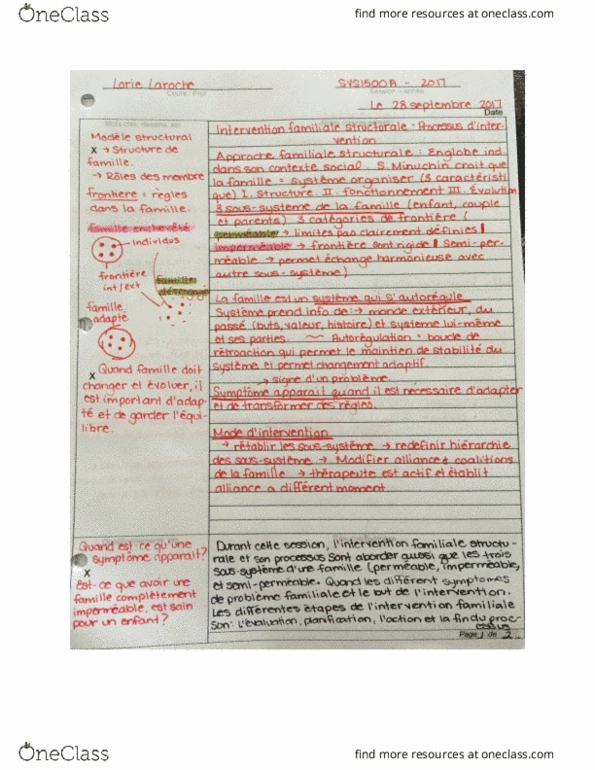 OneClass
find more resources at oneclass.com
Lorie Laroche
SVS1500A - 2017
Cours / Prof
Session - année
Le 28 septembre 2017
Date
Modèle structural
x → Structure de
famille.
→ Rôles des membre
frontiere = règles
dans la famille.
famille enchevêtré
individus
frontière
int/ext
famille
désengagé
famille
adapté
x Quand famille doit
changer et évoluer, il
est important d'adap-
té et de garder l'équi-
libre.
Intervention familiale structurale - Processus d'inter-
vention
Approche familiale structurale : Englobe ind.
dans son contexte social. S. Minuchin croit que
la famille = système organiser (3 caractéristi
que) I. Structure II. fonctionnement III. Évolution
3 sous-système de la famille (enfant, couple
et parents) 3 catégories de frontière (
perméable → limites pas clairement définies |
imperméable → frontière sont rigide | Semi-per-
méable → permet échange harmonieuse avec
autre sous-système)
La famille est un système qui s'autorégule
Système prend info de: → monde extérieur, du
passé (buts, valeur, histoire) et systeme lui-même
et ses parties. Autorégulation = boucle de
rétroaction qui permet le maintien de stabilité du
système et permet changement adaptif.
→ signe d'un problème.
Symptôme apparait quand il est nécessaire d'adapter
et de transformer des règles.
Mode d'intervention
→ rétablir les sous-système → redefinir hiérarchie
des sous-système → Modifier alliance et coalitions
de la famille → thérapeute est actif et établit
alliance a différent moment
Quand est-ce qu'une
symptôme apparait?
x
Est-ce que avoir une
famille complètement
imperméable, est sain
pour un enfant?
Durant cette session, l'intervention familiale structu-
rale et son processus sont aborder aussi que les trois
sous-système d'une famille (perméable, imperméable,
et semi-perméable. Quand les différent symptomes
de problème familiale et le but de l'intervention.
Les différentes étapes de l'intervention familiale
son: L'évaluation, planification, l'action et la fin du proc-
essus
Page 1 de 2
OneClass
find more resources at oneclass.com